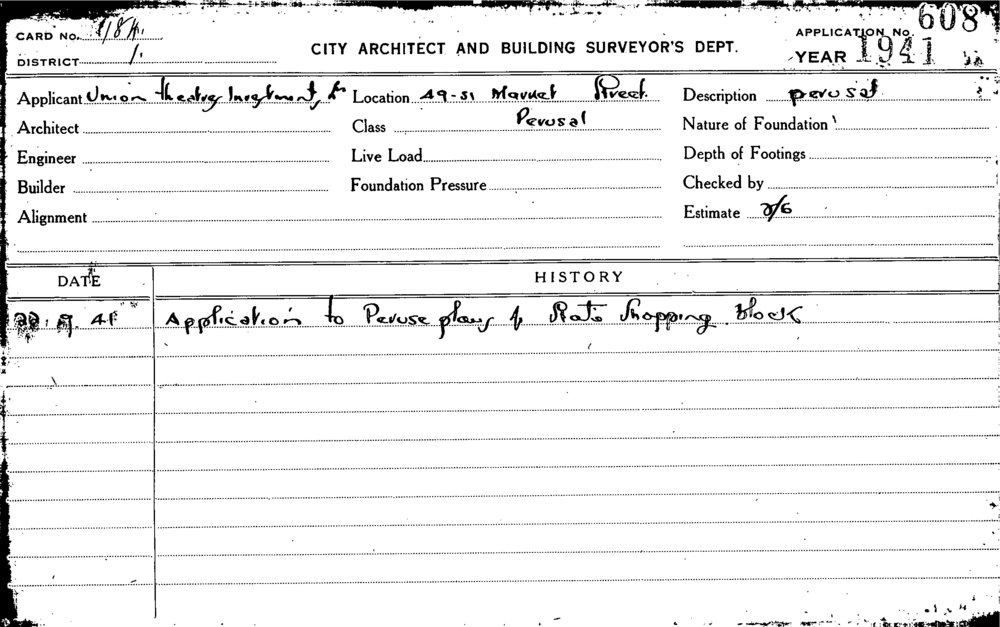 CARD No.
DISTRICT 1.
CITY ARCHITECT AND BUILDING SURVEYOR'S DEPT.
APPLICATION No. 608
YEAR 1941
Applicant Union Theatres Investments
Location 49-51 Market Street.
Description perusal
Architect
Class Perusal
Nature of Foundation
Engineer
Live Load
Depth of Footings
Builder
Foundation Pressure
Checked by
Alignment
Estimate 2/6
DATE HISTORY
22. 41 Application to Peruse plans of State Shopping Block